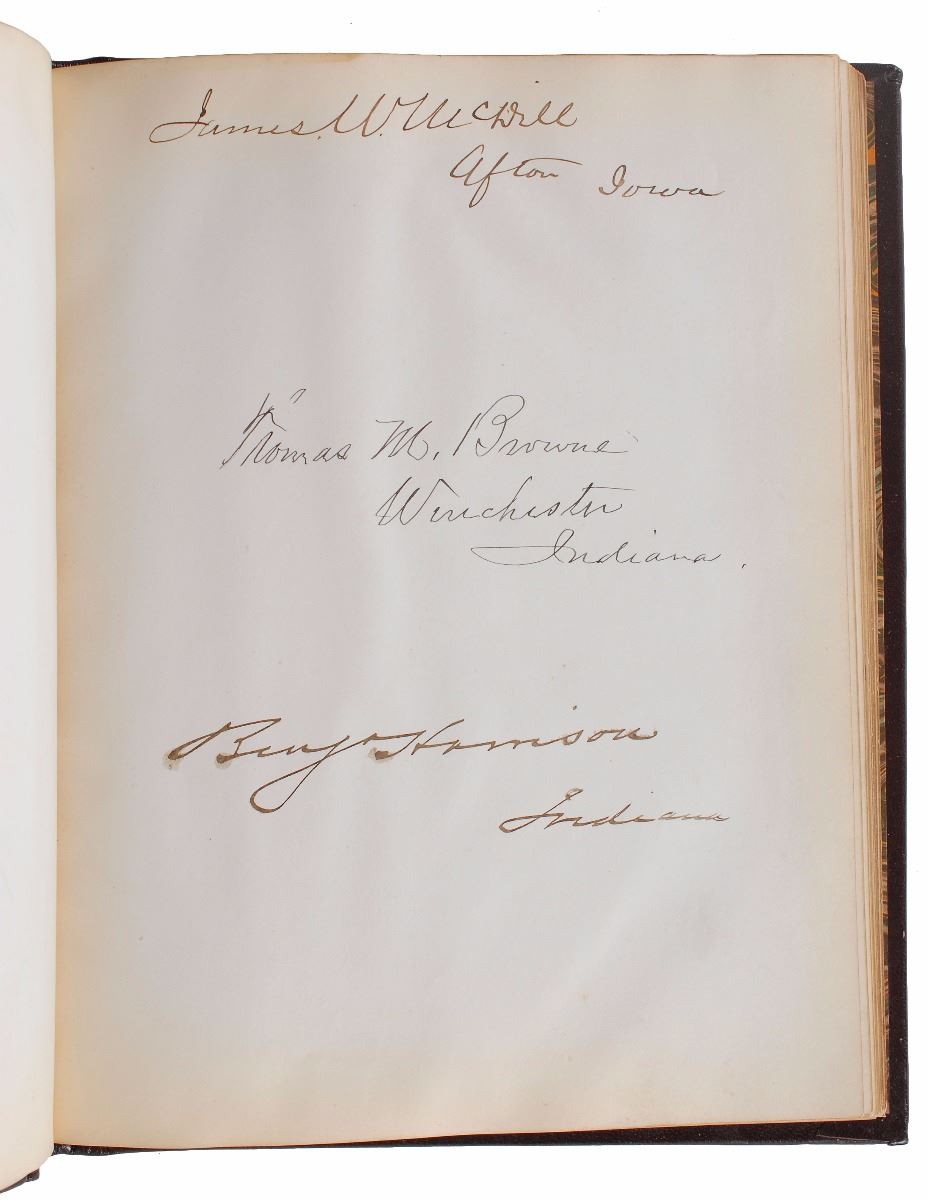 James. W. McDill
Afton Iowa
Thomas M. Browne
Winchester
Indiana.
Benj Harrison
Indiana